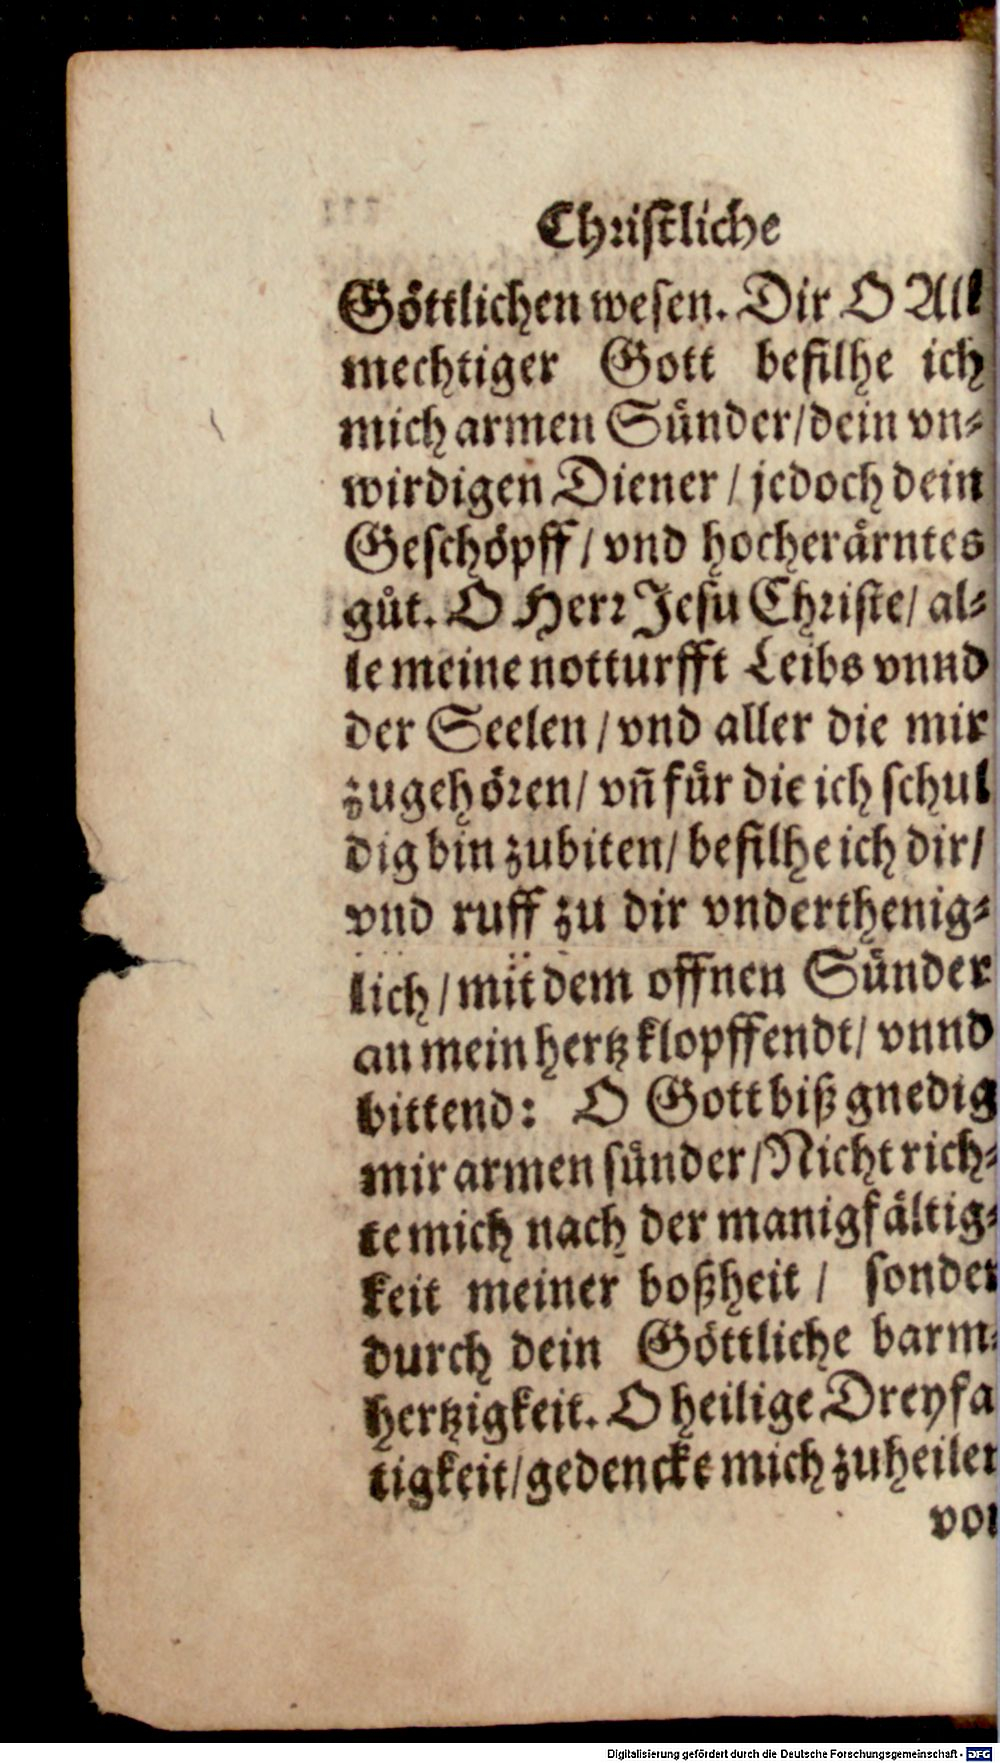 Christliche
Göttlichen wesen. Dir O All
mechtiger Gott befilhe ich
mich armen Sünder/dein vn⸗
wirdigen Diener / jedoch dein
Geschöpff / vnd hocherärntes
gůt. O Herr Jesu Christe/ al⸗
le meine notturfft Leibs vnnd
der Seelen / vnd aller die mir
zugehören/ vñ für die ich schul
dig bin zubiten/ befilhe ich dir/
vnd ruff zu dir vnderthenig⸗
lich / mit dem offnen Sünder
an mein hertz klopffendt/ vnnd
bittend: O Gott biß gnedig
mir armen sünder/Nicht rich⸗
te mich nach der manigfältig⸗
keit meiner boßheit / sonder
durch dein Göttliche barm⸗
hertzigkeit. O heilige Dreyfa
tigkeit/gedencke mich zuheilen
von
Digitalisierung gefördert durch die Deutsche Forschungsgemeinschaft - DFG